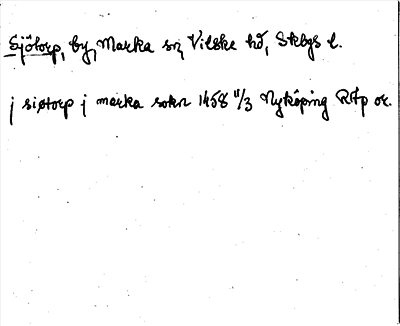 Sjötorp, by, Marka sn, Vilske hd, Skbgs l.
j siøtorp j marka sokn 1458 11/3 Nyköping RAp or.